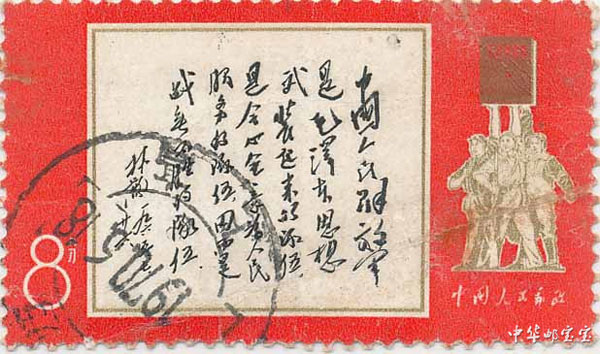 中国人民解放军
是毛澤东思想
武装起来的队伍,
是全心全意为人民
服务的队伍,因而是
战无不胜的队伍.
林彪
8分
1970.5
中国人民邮政
中华邮宝宝